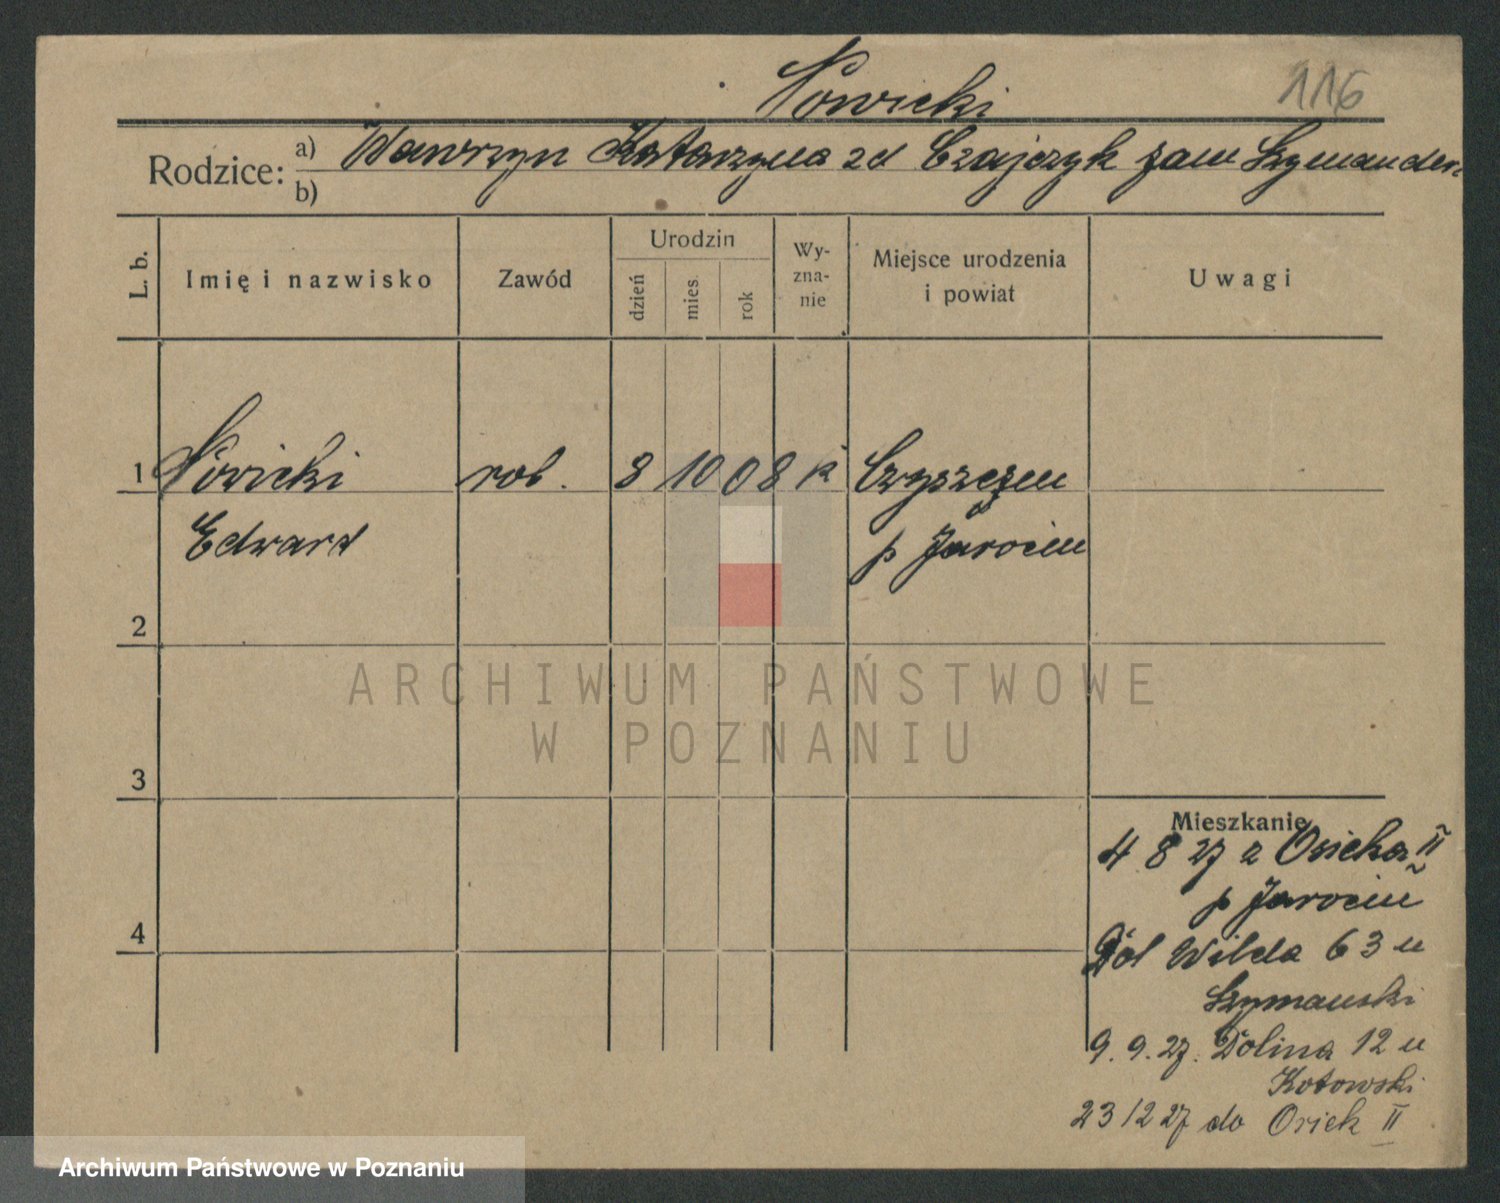 Nowicki
116
Rodzice: a) Wawrzyn Katarzyna zd Czajczyk zam
b)
L. b.
Imię i nazwisko
Zawód
Urodzin
dzień
mies.
rok
Wy-
zna-
nie
Miejsce urodzenia
i powiat
Uwagi
1 Nowicki rob. 8 10 08 k
Edward p Jarocin
2
3
4
Mieszkanie
4 8 27 z Osieka II
p Jarocin
Dol Wilda 63 u
Szymanski
9. 9. 27. Dolina 12 u
Kotowski
23 12 27 do Osiek II
ARCHIWUM PAŃSTWOWE
W POZNANIU
Archiwum Państwowe w Poznaniu